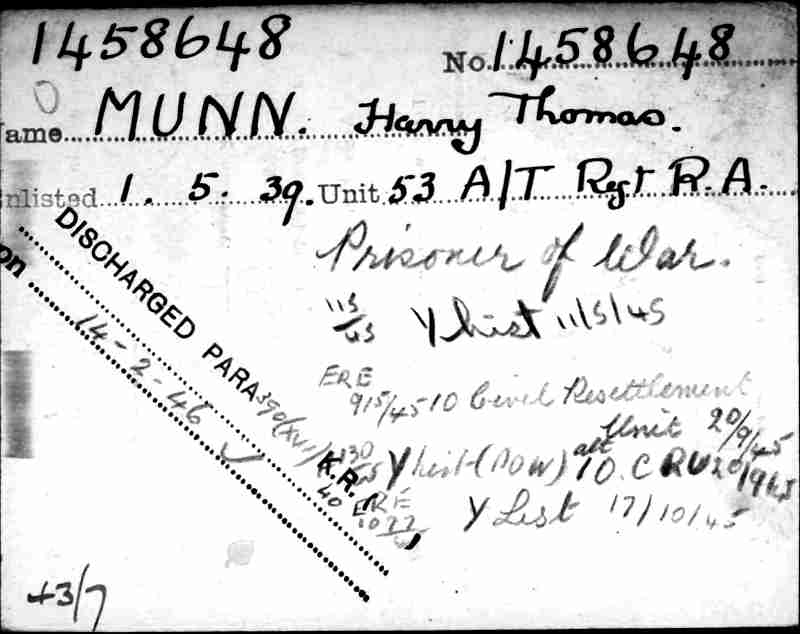 1458648
No. 1458648
ame MUNN. Harry Thomas.
nlisted 1. 5. 39. Unit 53 A/T Regt R.A.
Prisoner of War.
115/45 Y List 11/5/45
ERE
915/45 10 Civil Resettlement
Unit 20/9/45
Y List (POW) 10. C RU
ERE
1077
Y List 17/10/45
DISCHARGED PARA 390(XVI) K.R. 40
on 14-2-46
+3/7